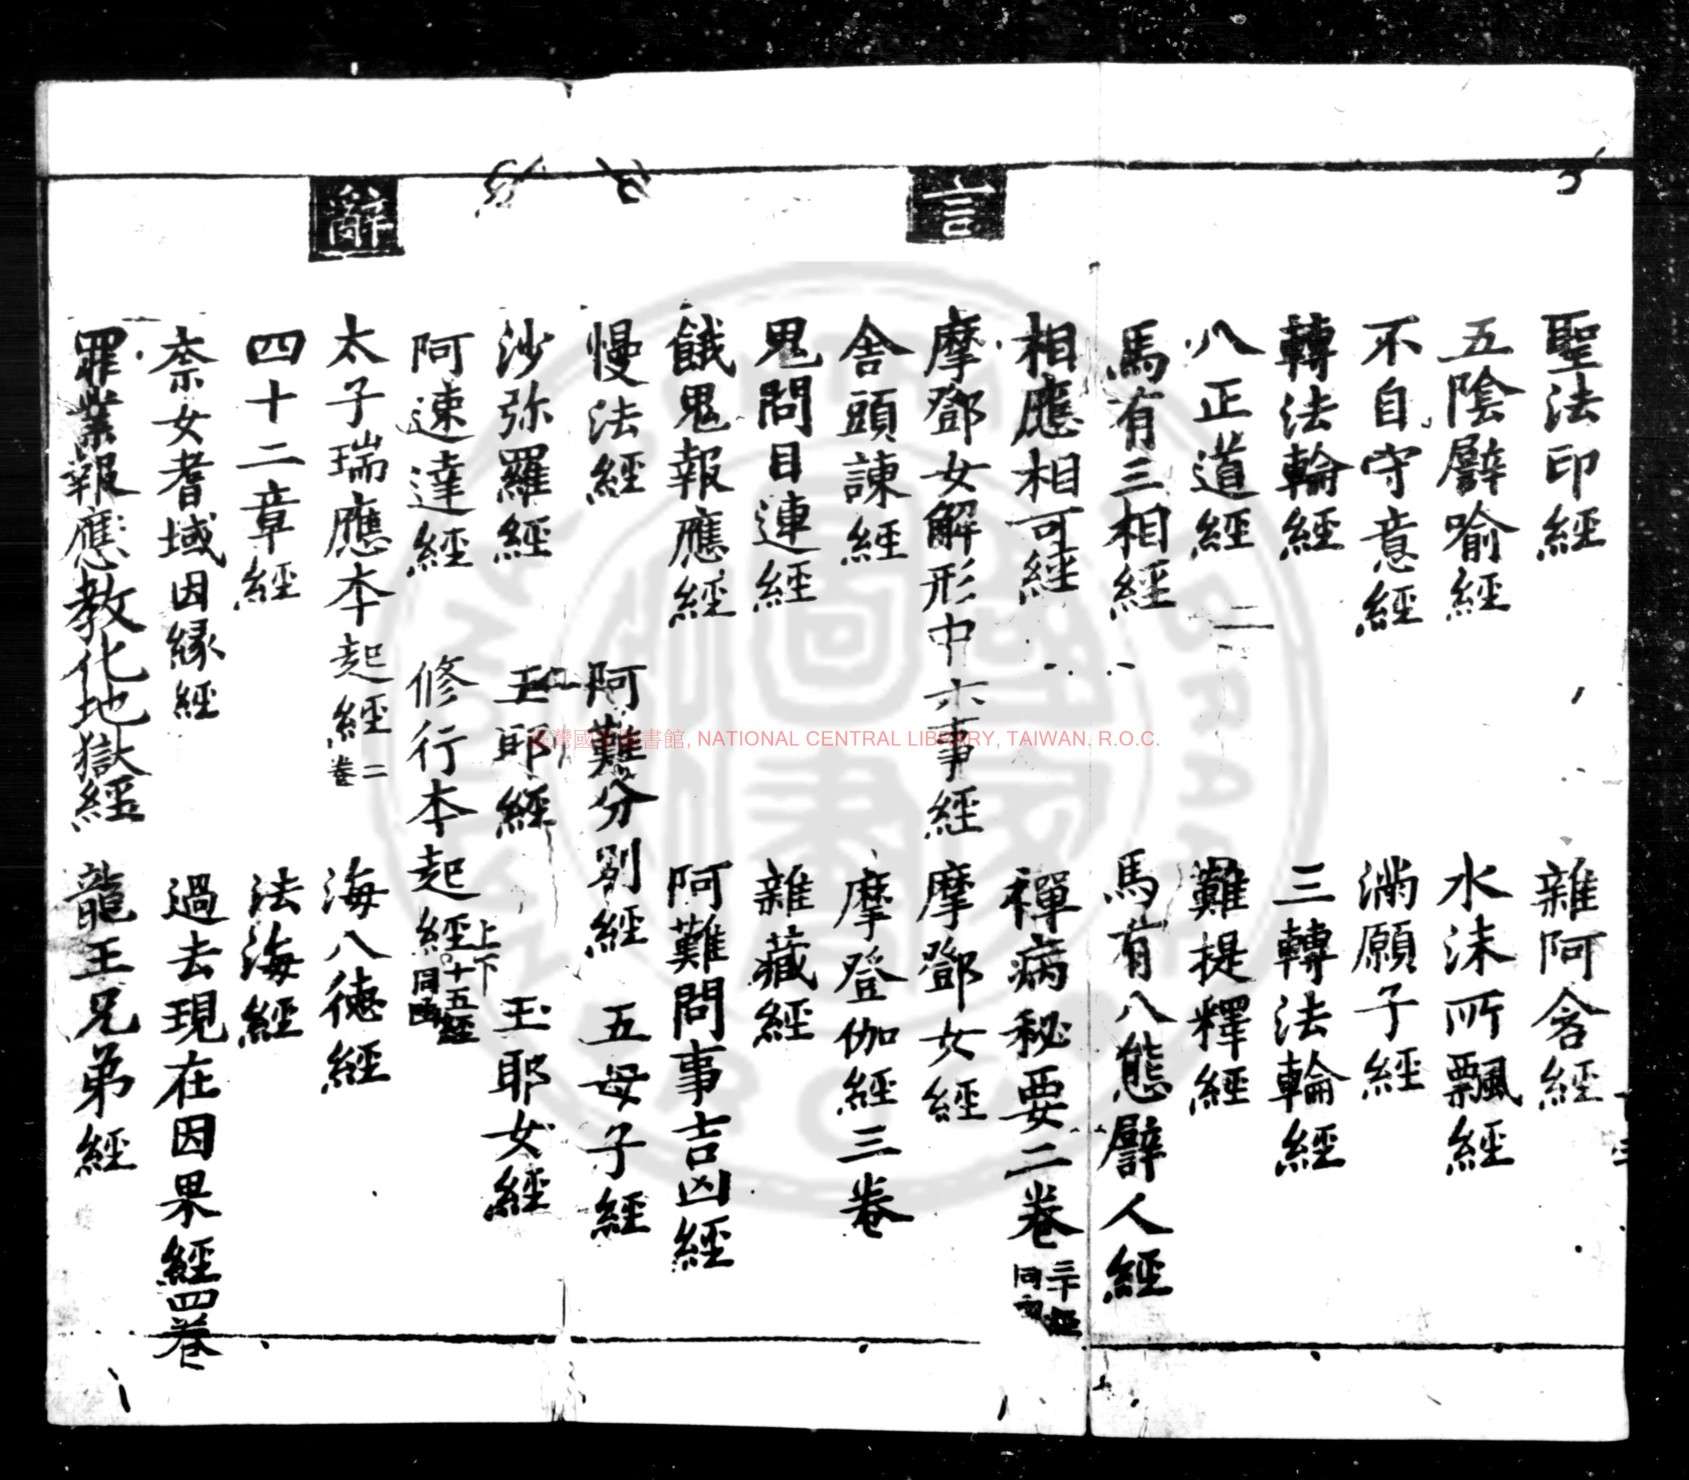 聖法印經 雜阿含經
五陰譬喻經 水沫所飄經
不自守意經 滿願子經
轉法輪經 三轉法輪經
八正道經 難提釋經
馬有三相經 馬有八態譬人經
相應相可經 禪病秘要二卷
言
摩鄧女解形中六事經 摩鄧女經
舍頭諫經 摩登伽經三卷
鬼問目連經 雜藏經
餓鬼報應經 阿難問事吉凶經
慢法經 阿難分別經 五母子經
沙弥羅經 玉耶經 玉耶女經
阿速達經 修行本起經上下 十五經同函
辭
太子瑞應本起經二卷 海八德經
四十二章經 法海經
柰女耆域因緣經 過去現在因果經四卷
罪業報應教化地獄經 龍王兄弟經
臺灣國家圖書館, NATIONAL CENTRAL LIBRARY, TAIWAN. R.O.C.